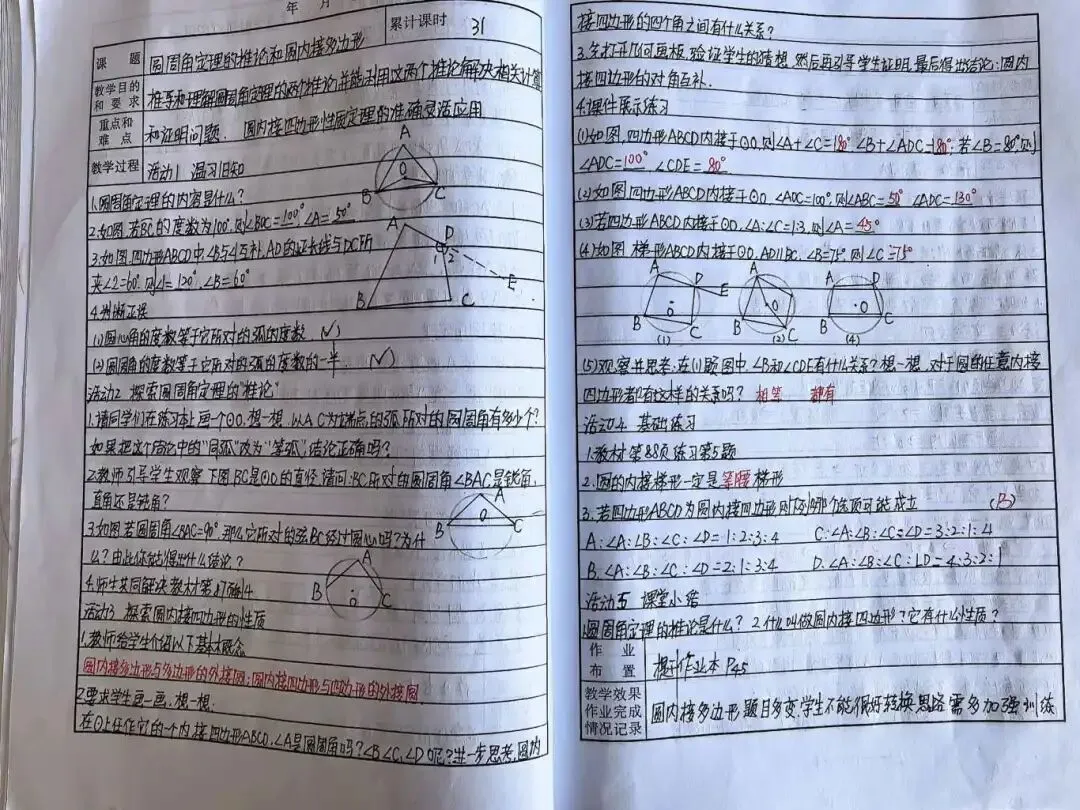 年 月
累计课时 31
课 题 圆周角定理的推论和圆内接多边形
教学目的和要求 推导和理解圆周角定理的两个推论并能利用这两个推论解决相关计算
重点和难点 和证明问题. 圆内接四边形性质定理的准确灵活应用
教学过程 活动1 温习旧知
1.圆周角定理的内容是什么?
2.如图,若BC的度数为100°,则∠BOC=100°,∠A=50°
3.如图,四边形ABCD中,∠B与∠1互补,AD的延长线与DC所
夹∠2=60°,则∠1=120°,∠B=60°
4.判断正误
(1)圆心角的度数等于它所对的弧的度数 (√)
(2)圆周角的度数等于它所对的弧的度数的一半. (√)
活动2 探索圆周角定理的"推论"
1.请同学们在练习本上画一个⊙O.想一想,以A C为端点的弧所对的圆周角有多少个?
如果把这个结论中的"同弧"改为"等弧",结论正确吗?
2.教师引导学生观察下图,BC是⊙O的直径.请问:BC所对的圆周角∠BAC是锐角,
直角还是钝角?
3.如图,若圆周角∠BAC=90°,那么它所对的弦BC经过圆心吗?为什
么?由此你能得出什么结论?
4.师生共同解决教材第87页例4
活动3 探索圆内接四边形的性质
1.教师给学生介绍以下基本概念
圆内接多边形与多边形的外接圆;圆内接四边形与四边形的外接圆.
2.要求学生画一画,想一想:
在⊙O上任作它的一个内接四边形ABCD,∠A是圆周角吗?∠B ∠C,∠D呢?进一步思考,圆内
接四边形的四个角之间有什么关系?
3.先打开几何画板,验证学生的猜想,然后再引导学生证明,最后得出结论:圆内
接四边形的对角互补.
4.课件展示练习
(1)如图,四边形ABCD内接于⊙O,则∠A+∠C=180° ∠B+∠ADC=180°;若∠B=80°,则
∠ADC=100° ∠CDE=80°
(2)如图,四边形ABCD内接于⊙O,∠AOC=100°,则∠ABC=50° ∠ADC=130°
(3)若四边形ABCD内接于⊙O,∠A:∠C=1:3,则∠A=45°
(4)如图,梯形ABCD内接于⊙O,AD∥BC,∠B=75°,则∠C=75°
(1) (2) (4)
(5)观察并思考:在(1)题图中,∠B和∠CDE有什么关系?想一想,对于圆的任意内接
四边形都有这样的关系吗? 相等 都有
活动4 基础练习
1.教材第88页练习第5题
2.圆的内接梯形一定是等腰梯形
3.若四边形ABCD为圆内接四边形,则下列哪个选项可能成立 (B)
A:∠A:∠B:∠C:∠D=1:2:3:4 C:∠A:∠B:∠C:∠D=3:2:1:4
B.∠A:∠B:∠C:∠D=2:1:3:4 D.∠A:∠B:∠C:∠D=4:3:2:1
活动五 课堂小结
1.圆周角定理的推论是什么? 2.什么叫做圆内接四边形?它有什么性质?
作业布置 作业本P45
教学效果作业完成情况记录 圆内接多边形题目多变,学生不能很好转换思路,需多加强训练